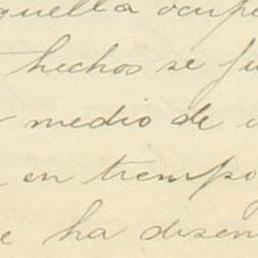 aquella ocupe
hechos se fu
medio de
en tiempo
e ha disen